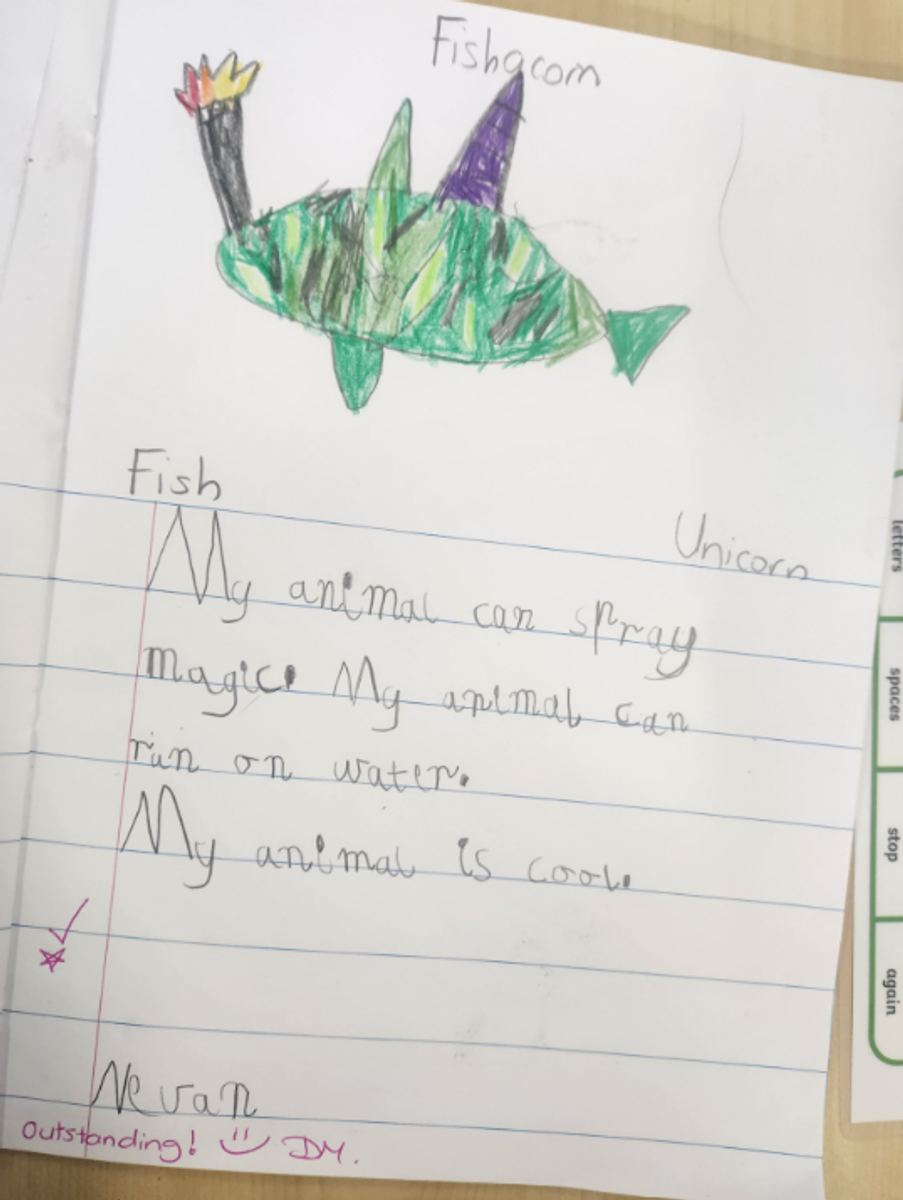 Fishacorn
Fish
Unicorn
My animal can spray
magic. My animal can
run on water.
My animal is cool.
Nevan
Outstanding! DM.
letters
spaces
stop
again